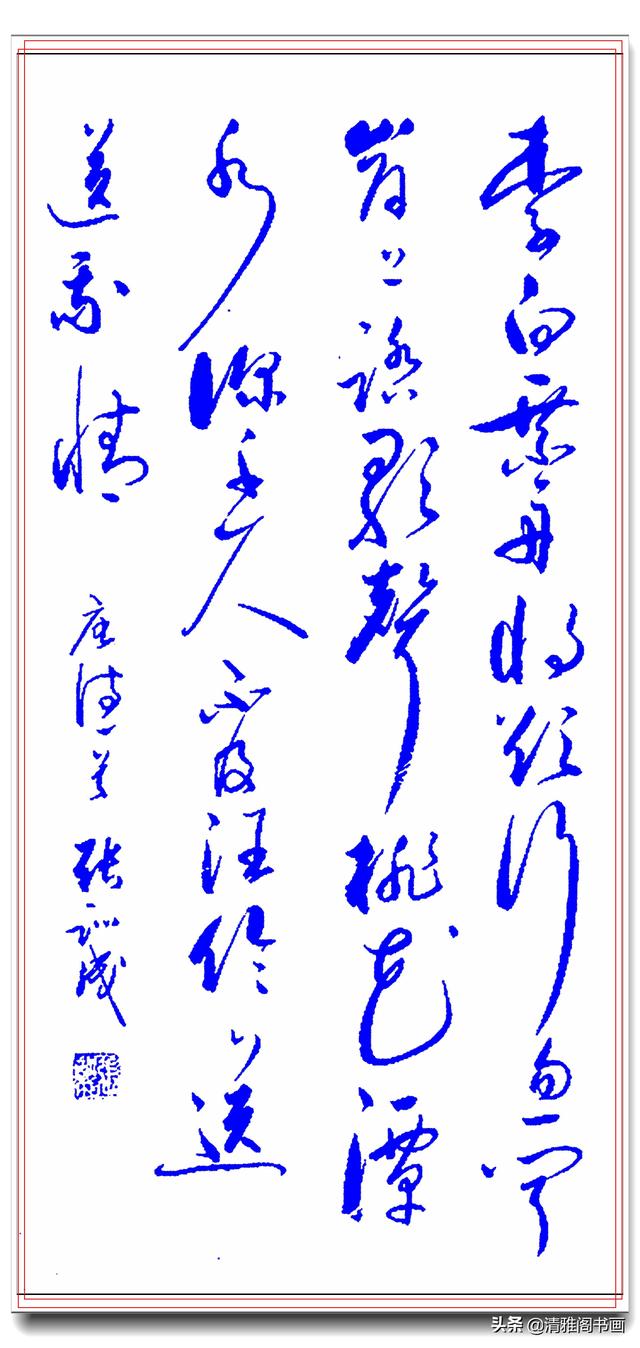 李白乘舟将欲行忽闻
岸上踏歌聲桃花潭
水深千尺不及汪伦送
送我情
唐诗一首 张训成
头条 @清雅阁书画